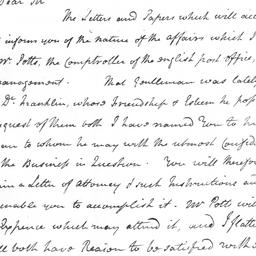 Dear Sir
The Letters and Papers which will acc
inform you of the nature of the affairs which I
Mr. Potts, the Comptroller of the english post office,
anagement. That Gentleman was lately
Dr. Franklin, whose Friendship & Esteem he pos
quest of them both I have named You to h
on to whom he may with the utmost Confid
the Business in Question. You will therefor
in a Letter of attorney & such Instructions an
enable you to accomplish it. Mr Pott will
Expence which may attend it, and I flatte
ll both have Reason to be satisfied with